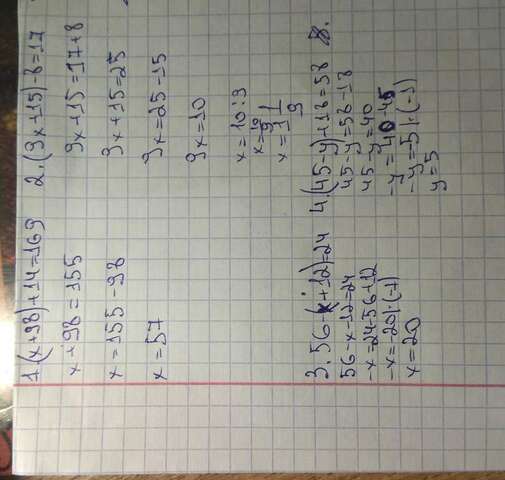 1. (x+98)+14=169
x+98=155
x=155-98
x=57
2. (9x+15)-8=17
9x+15=17+8
9x+15=25
9x=25-15
9x=10
x=10:9
x=10/9
x=1 1/9
3. 56-(x+12)=24
56-x-12=24
-x=24-56+12
-x=-20|·(-1)
x=20
4. (45-y)+18=58
45-y=58-18
45-y=40
-y=40-45
-y=-5|·(-1)
y=5